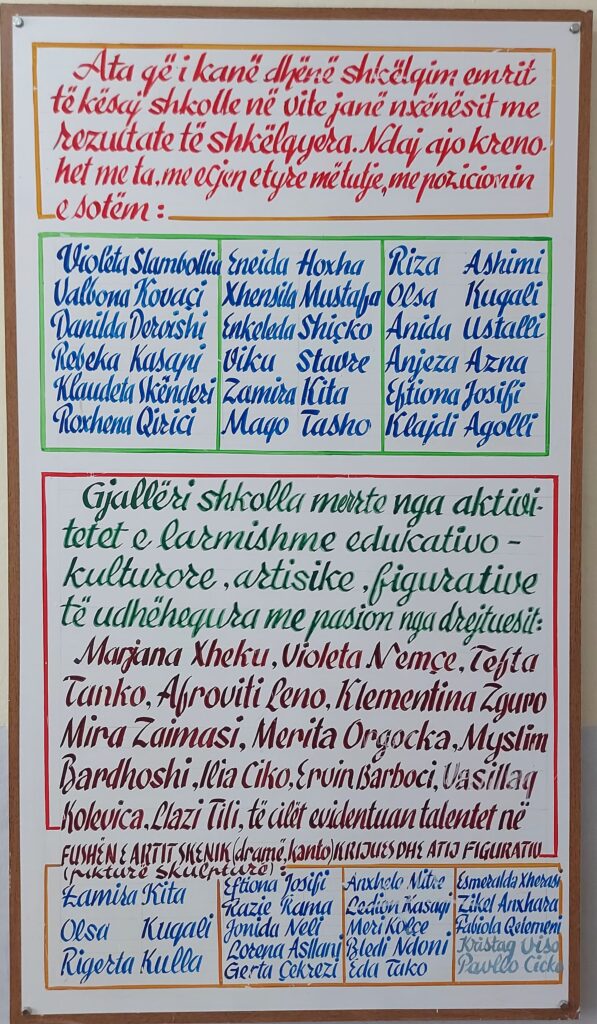 Ata që i kanë dhënë shkëlqim emrit
të kësaj shkolle në vite janë nxënësit me
rezultate të shkëlqyera. Ndaj ajo kreno-
het me ta, me ecjen e tyre më tutje, me pozicionin
e sotëm :
Violeta Slambolliu
Valbona Kovaçi
Danilda Dervishi
Rebeka Kasapi
Klaudeta Skënderi
Roxhena Qirici
Eneida Hoxha
Xhensila Mustafa
Enkeleda Shiçko
Viku Stavre
Zamira Kita
Mago Tasho
Riza Ashimi
Olsa Kuqali
Anida Ustalli
Anjeza Azna
Eftiona Josifi
Klajdi Agolli
Gjallëri shkolla merrte nga aktivi-
tetet e larmishme edukativo -
kulturore, artisike, figurative
të udhëhequra me pasion nga drejtuesit:
Marjana Xheku, Violeta Nemçe, Tefta
Tanko, Afroviti Leno, Klementina Zguro
Mira Zaimasi, Merita Orgocka, Myslim
Bardhoshi, Ilia Ciko, Ervin Barboci, Vasillaq
Kolevica, Llazi Tili, të cilët evidentuan talentet në
FUSHËN E ARTIT SKENIK (dramë, kanto) KRIJUES DHE ATIJ FIGURATIV
(pikturë skulpturë) :
Zamira Kita
Olsa Kuqali
Rigerta Kulla
Eftiona Josifi
Razie Rama
Jonida Neli
Lorena Asllani
Gerta Çekrezi
Anxhelo Mitre
Ledion Kasaqi
Meri Kolçe
Bledi Ndoni
Eda Tako
Esmeralda Xherasi
Zikel Anxhara
Fabiola Qelemeni
Kristaq Viso
Pavllo Cicko